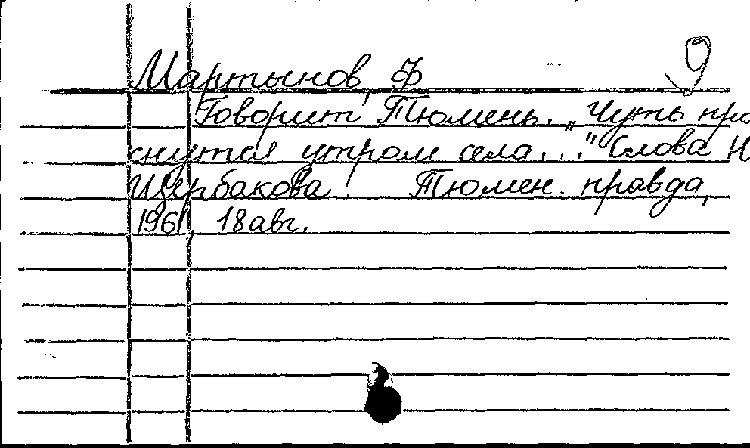 9
Мартынов, Ф
Говорит Тюмень. „Чуть про
снутся утром села..." Слова Н
Щербакова. Тюмен. правда,
1961, 18 авг.